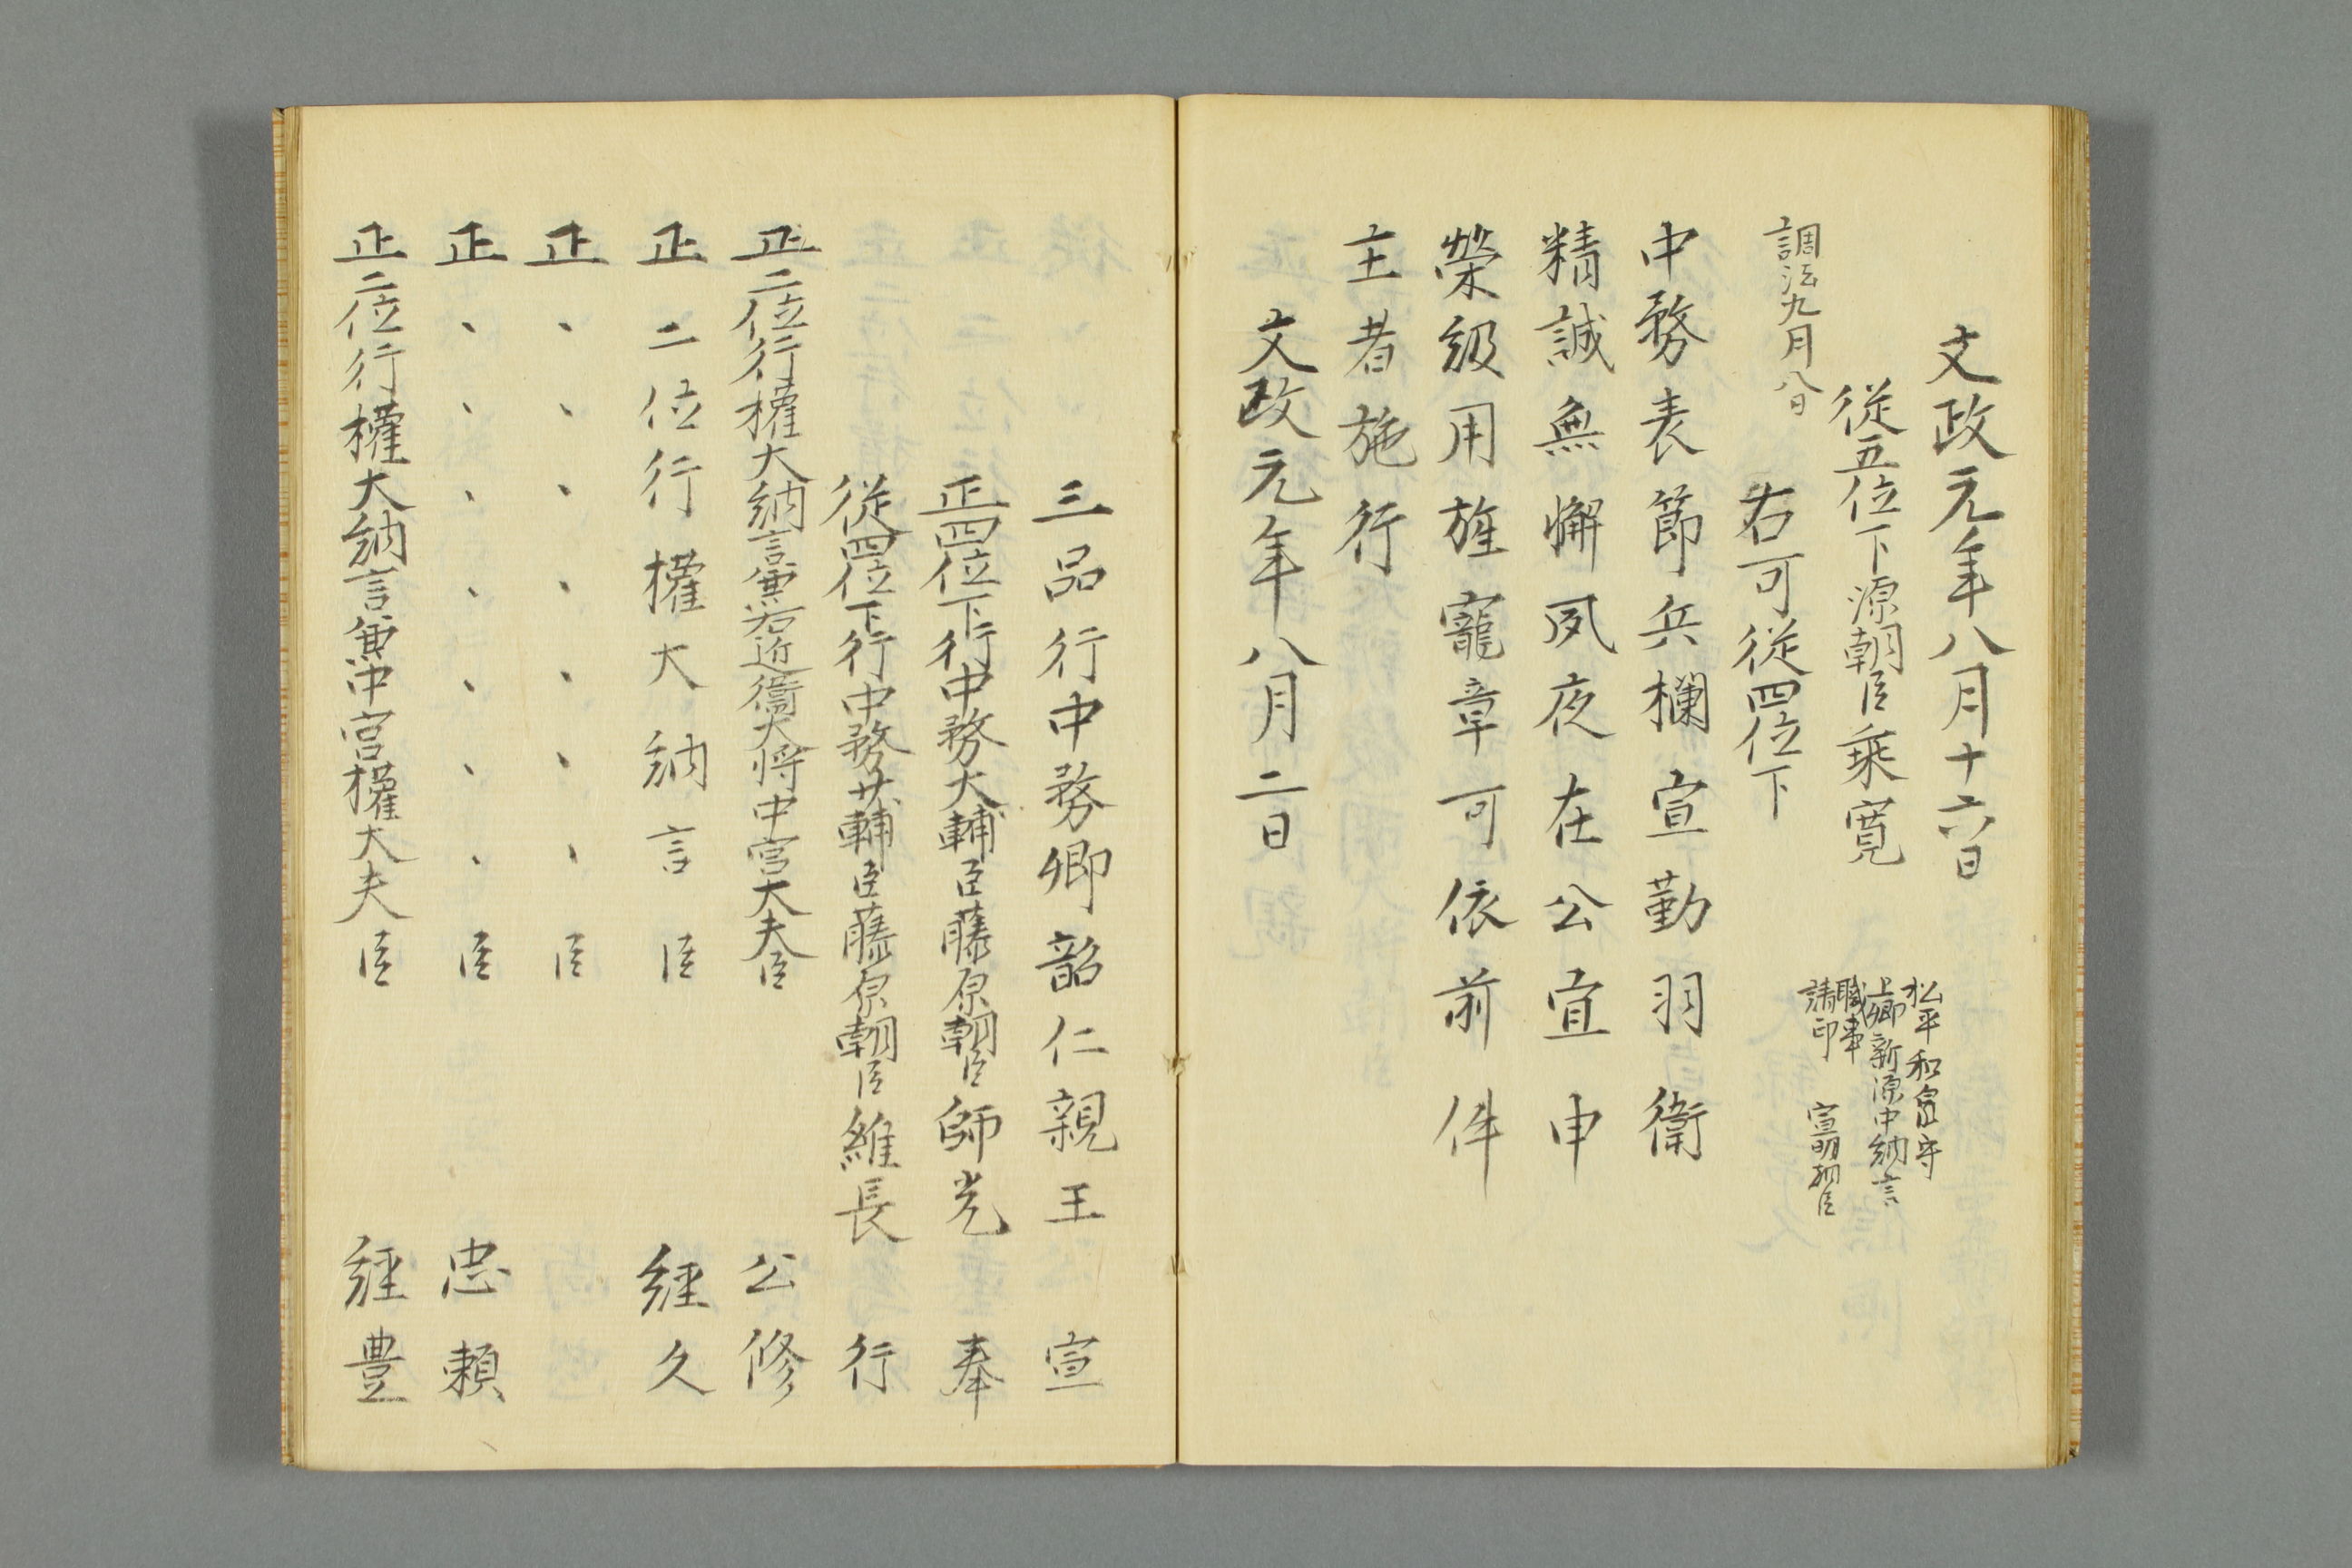 文政元年八月十六日
松平和泉守
上卿新源中納言
職事
請印 宣明朝臣
従五位下源朝臣乗寛
調法九月八日
右可従四位下
中務表節兵欄宣勤羽衛
精誠無懈夙夜在公宜申
榮級用旌寵章可依前件
主者施行
文政元年八月二日
三品行中務卿韶仁親王 宣
正四位下行中務大輔臣藤原朝臣師光 奉
従四位下行中務少輔臣藤原朝臣維長 行
正二位行權大納言兼右近衛大将中宮大夫臣 公修
正二位行權大納言臣 経久
正、、、、、、、臣
正、、、、、、、臣 忠頼
正二位行權大納言兼中宮權大夫臣 経豊